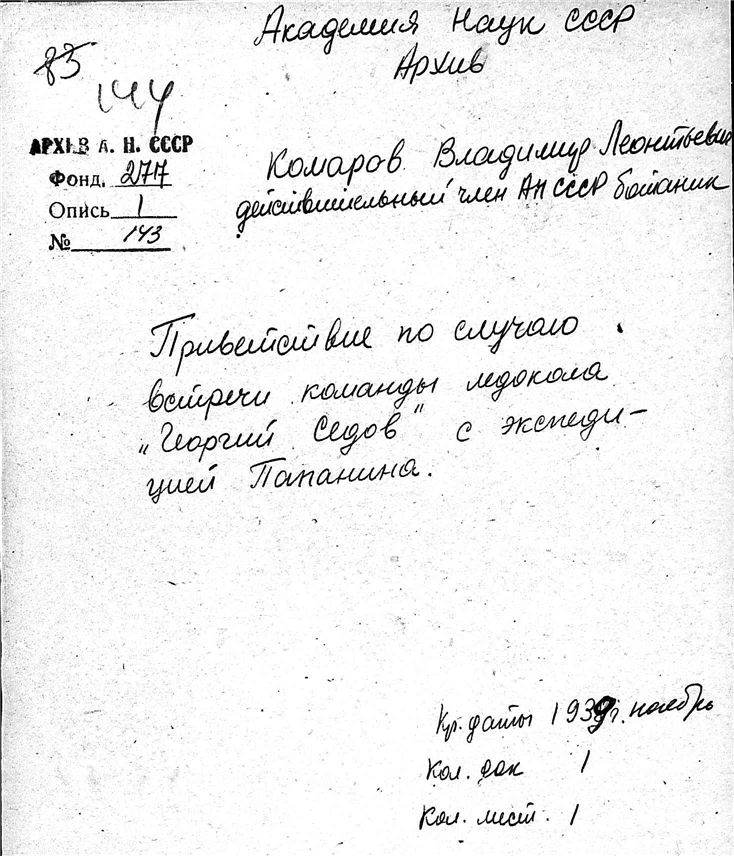 Академия Наук СССР
Архив
83
144
АРХИВ А. Н. СССР
Фонд. 277
Опись 1
№ 143
Комаров Владимир Леонтьевич
действительный член АН СССР ботаник
Приветствие по случаю
встречи команды ледокола
„Георгий Седов" с экспеди-
цией Папанина.
Кр. даты 1939г. ноябрь
Кол. док 1
Кол. лист. 1